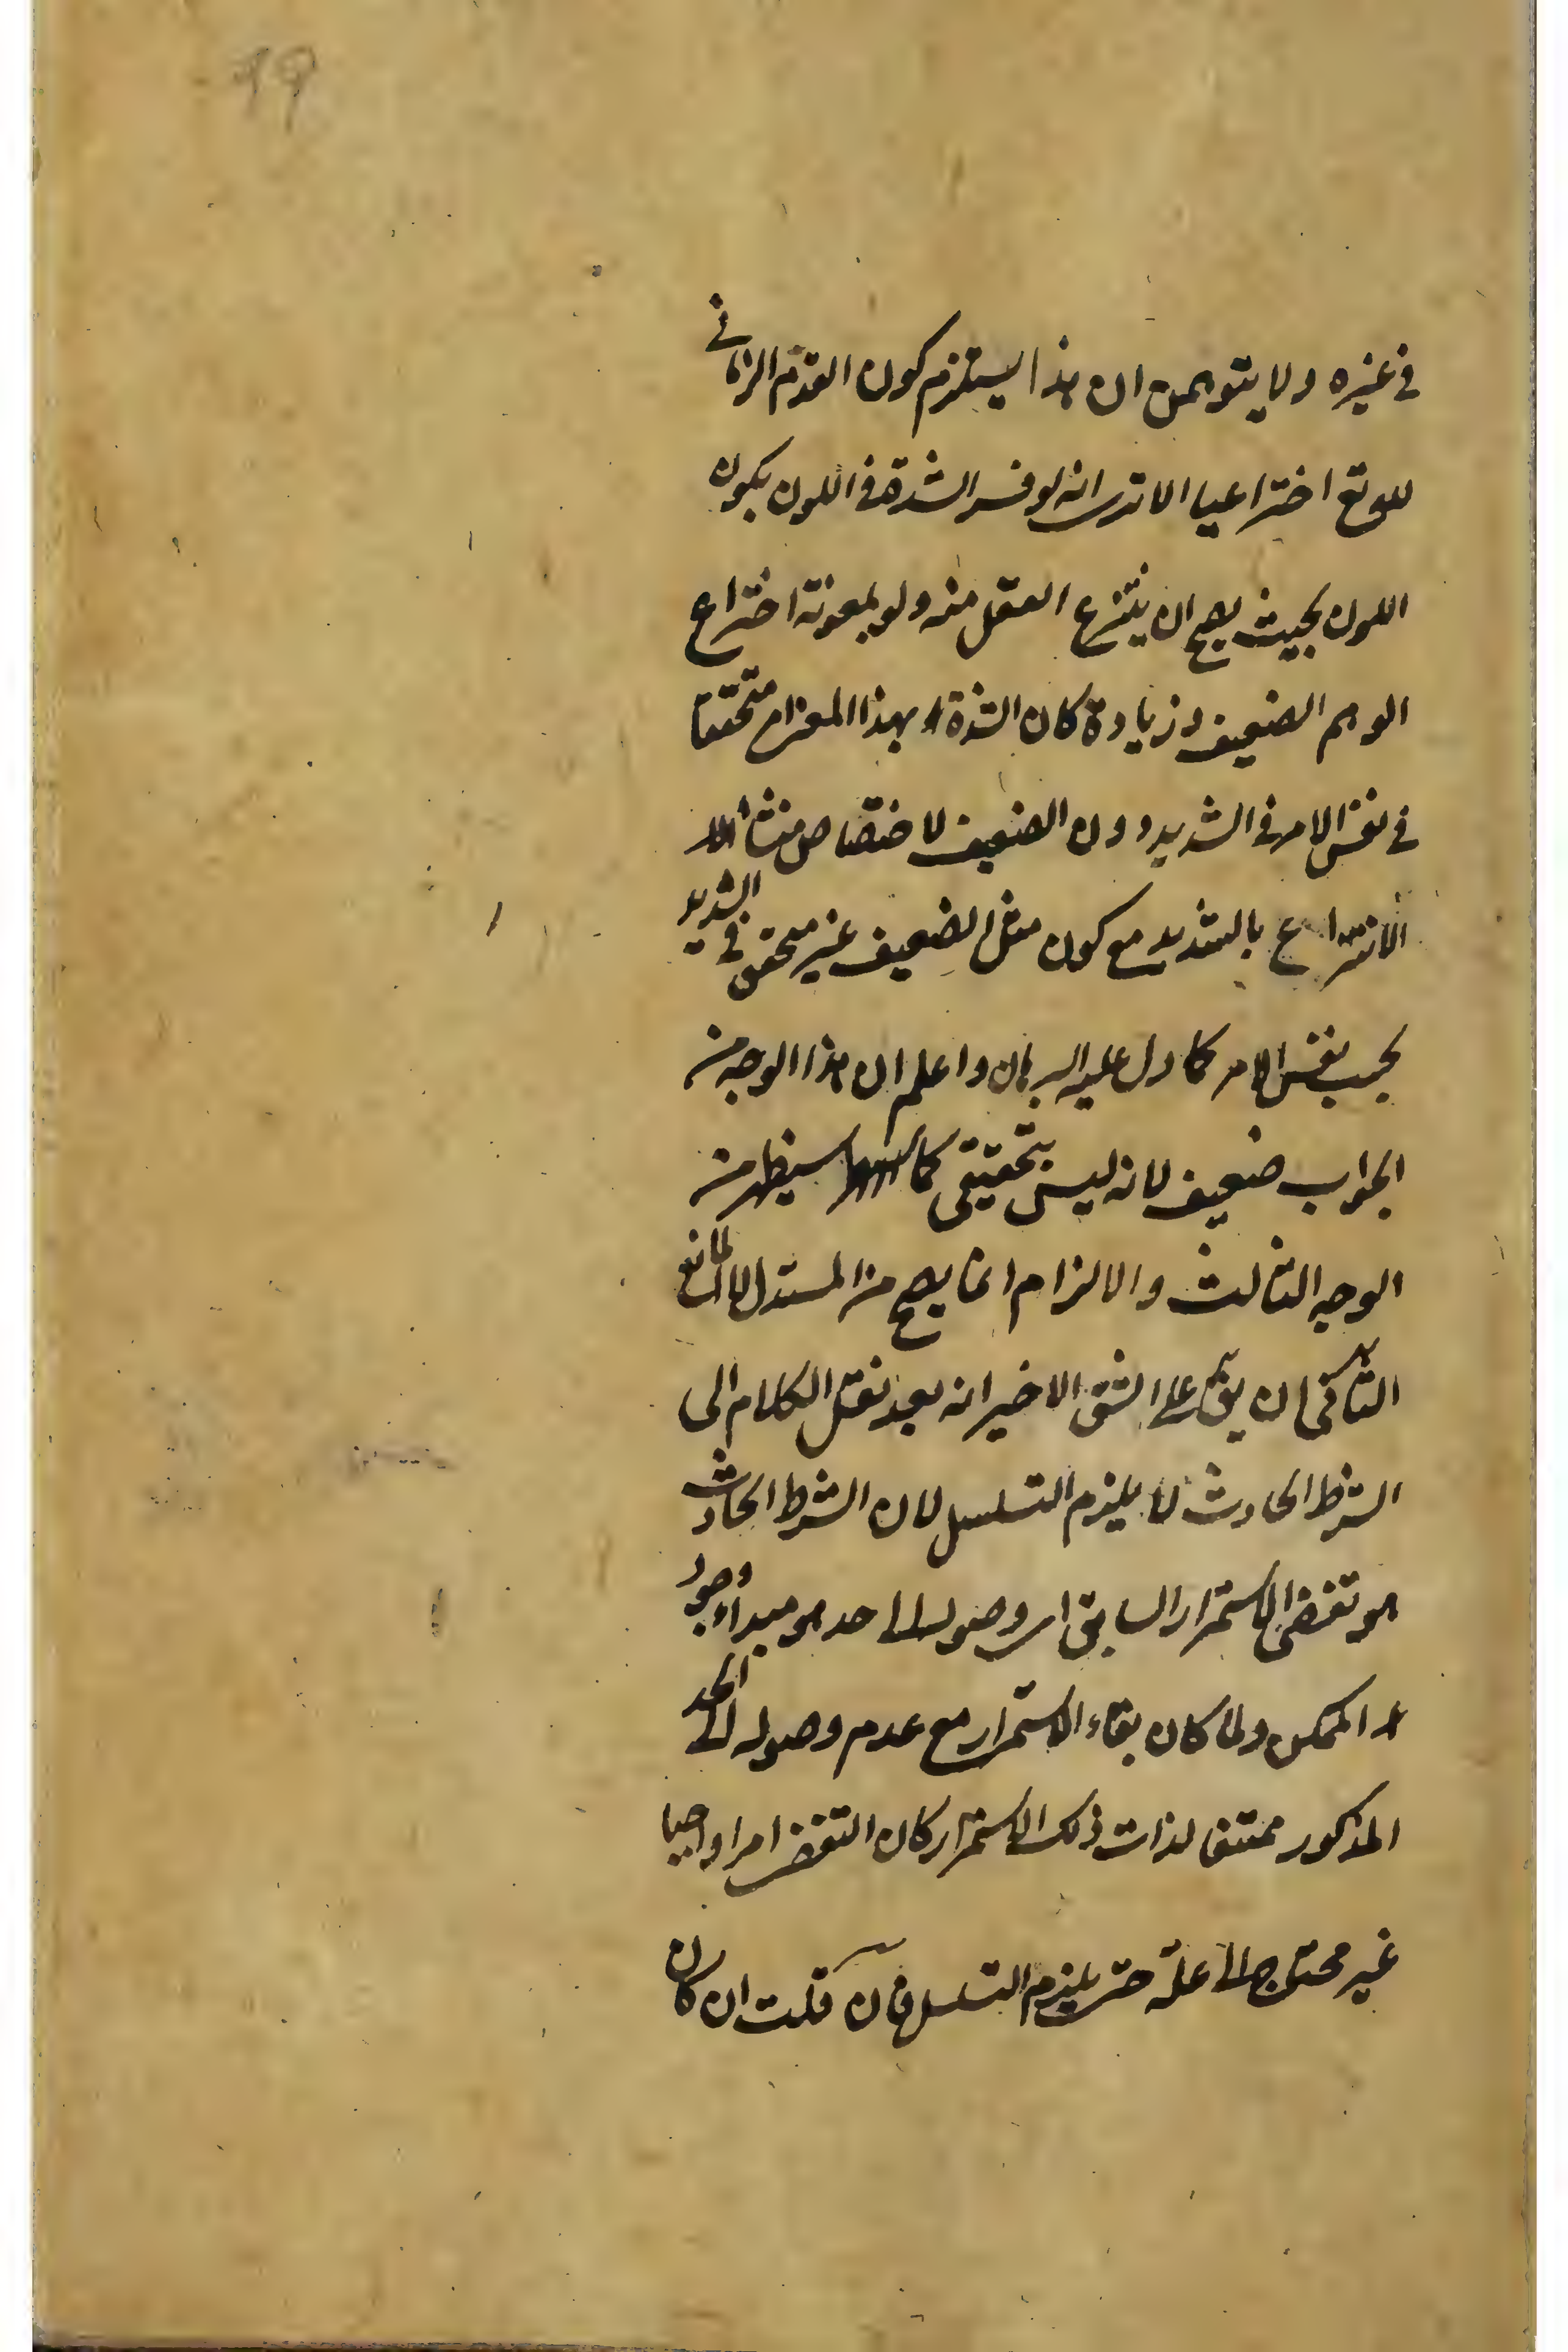 99
في غيره ولا يتوهمن ان هذا يستلزم كون القدم الزماني
للواقع اختراعيا الا ترى انه لو فسر الشدة في اللون بكون
اللون بحيث يصح ان ينتزع العقل منه ولو بمعونة اختراع
الوهم الضعيف وزيادة كان الشدة بهذا المعنى متحققا
في نفس الامر في الشديد دون الضعيف لاختصاص منشأ
الانتزاع بالشديد مع كون مثل الضعيف غير متحقق في الشديد
بحسب نفس الامر كما دل عليه البرهان واعلم ان هذا الوجه من
الجواب ضعيف لانه ليس بتحقيقي كما سيظهر من
الوجه الثالث والالزام انما يصح من المستدل لا المانع
الثاني ان يق على الشق الاخير انه بعد نقل الكلام الى
الشرط الحادث لا يلزم التسلسل لان الشرط الحادث
هو تقضى الاستمرار السابق اى وصوله الى حد هو مبدأ وجود
الممكن ولما كان بقاء الاستمرار مع عدم وصوله الى الحد
المذكور ممتنعا لذات ذلك الاستمرار كان التقضى امرا واجبا
غير محتاج الى علة حتى يلزم التسلسل فان قلت ان كان